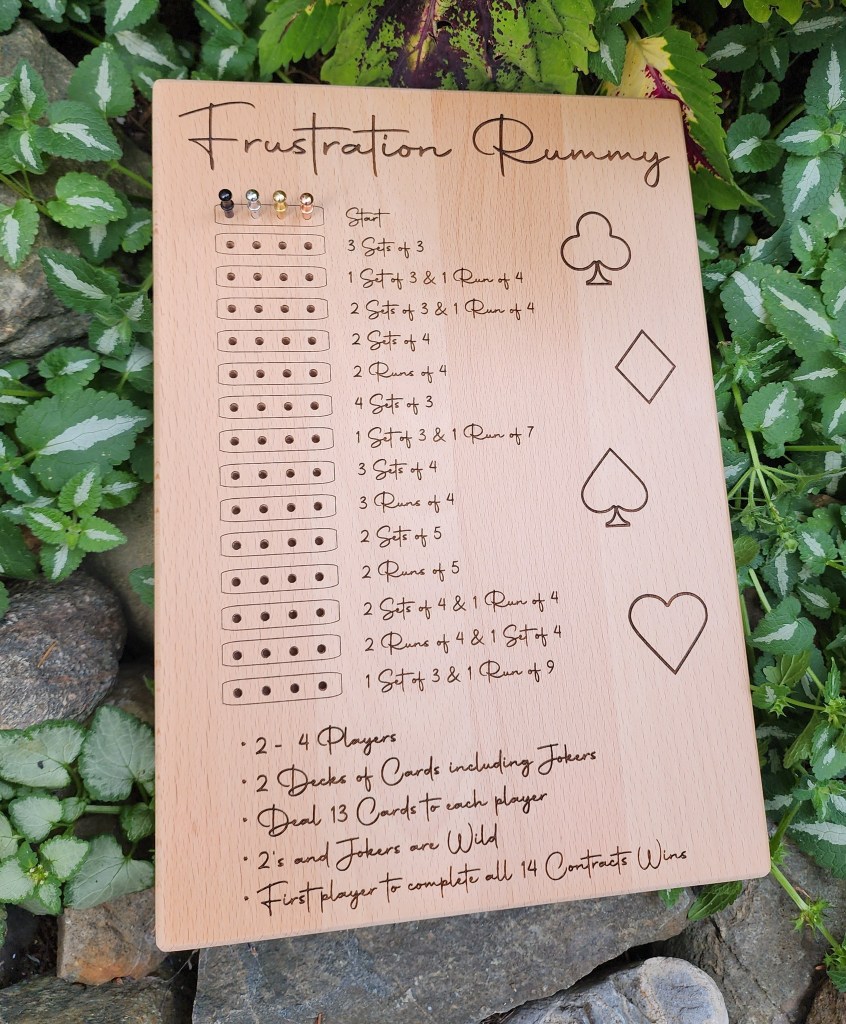 Frustration Rummy
Start
3 Sets of 3
1 Set of 3 & 1 Run of 4
2 Sets of 3 & 1 Run of 4
2 Sets of 4
2 Runs of 4
4 Sets of 3
1 Set of 3 & 1 Run of 7
3 Sets of 4
3 Runs of 4
2 Sets of 5
2 Runs of 5
2 Sets of 4 & 1 Run of 4
2 Runs of 4 & 1 Set of 4
1 Set of 3 & 1 Run of 9
• 2 - 4 Players
• 2 Decks of Cards including Jokers
• Deal 13 Cards to each player
• 2's and Jokers are Wild
• First player to complete all 14 Contracts Wins